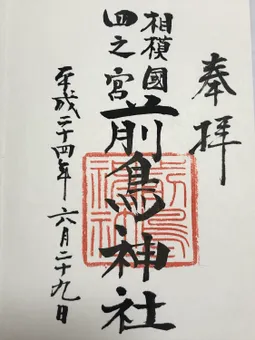 奉拝
相模國
四之宮
前鳥神社
平成二十四年六月二十九日